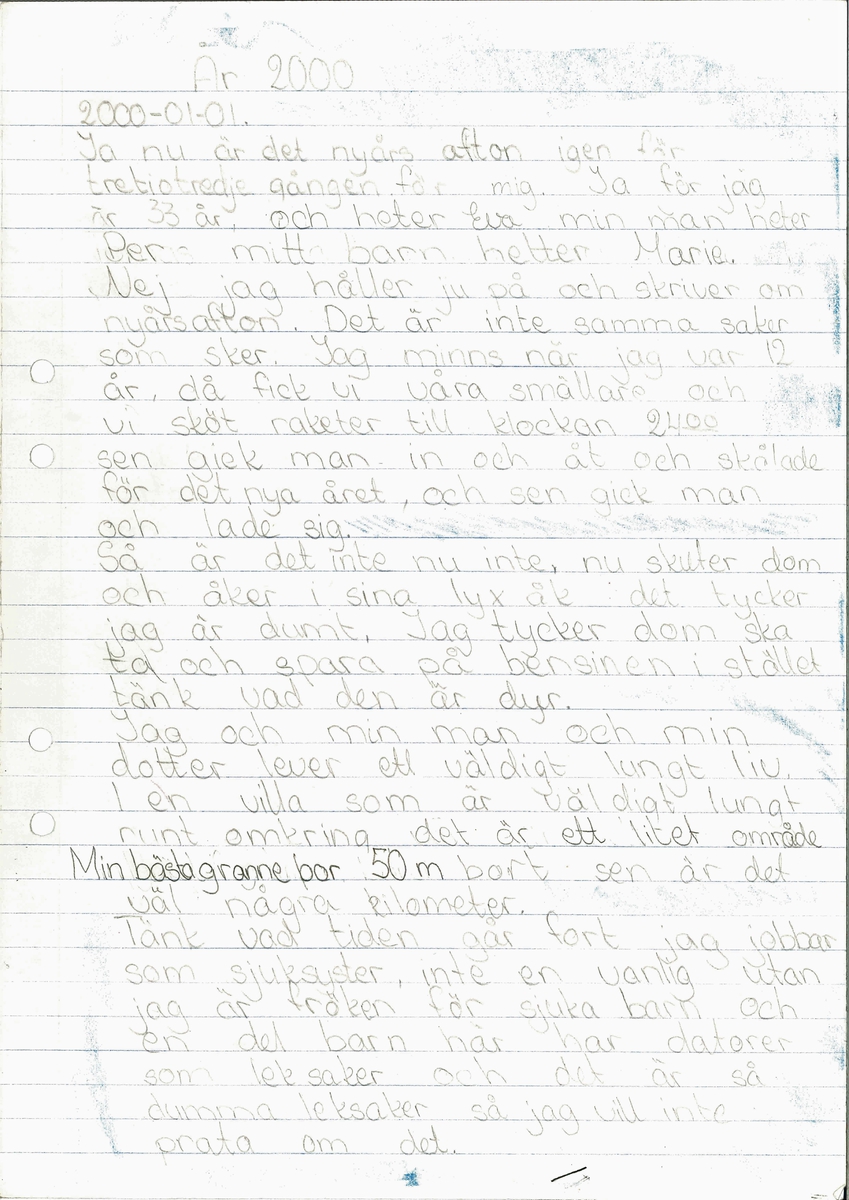 År 2000
2000-01-01.
Ja nu är det nyårs afton igen för
tretiotredje gången för mig. Ja för jag
är 33 år, och heter Eva min man heter
Per mitt barn hetter Marie.
Nej jag håller ju på och skriver om
nyårsafton. Det är inte samma saker
som sker. Jag minns när jag var 12
år, då fick vi våra smällare och
vi sköt raketer till klockan 2400
sen gick man in och åt och skålade
för det nya året, och sen gick man
och lade sig.
Så är det inte nu inte, nu skuter dom
och åker i sina lyx åk det tycker
jag är dumt. Jag tycker dom ska
ta och spara på bensinen i stället
tänk vad den är dyr.
Jag och min man och min
dotter lever ett väldigt lungt liv.
I en villa som är väldigt lungt
runt omkring det är ett litet område
Min bästa granne bor 50 m bort sen är det
väl några kilometer.
Tänk vad tiden går fort jag jobbar
som sjuksyster, inte en vanlig utan
jag är fröken för sjuka barn och
en del barn här har datorer
som leksaker och det är så
dumma leksaker så jag vill inte
prata om det.